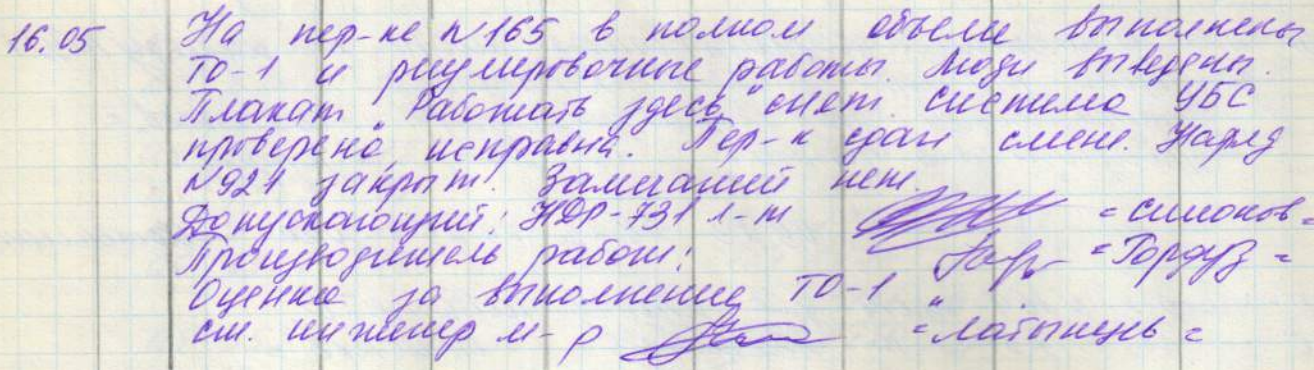 16.05 На пер-ке №165 в полном объеме выполнены
ТО-1 и регулировочные работы. Люди выведены.
Плакат "Работать здесь" снят. Система УБС
проверена, исправна. Пер-к сдан смене. Наряд
№921 закрыт. Замечаний нет.
Допускающий: НДР-731 л-т =Симонов=
Производитель работ: =Гордуз=
Оценка за выполнение ТО-1 "
ст. инженер м-р =Латышень=